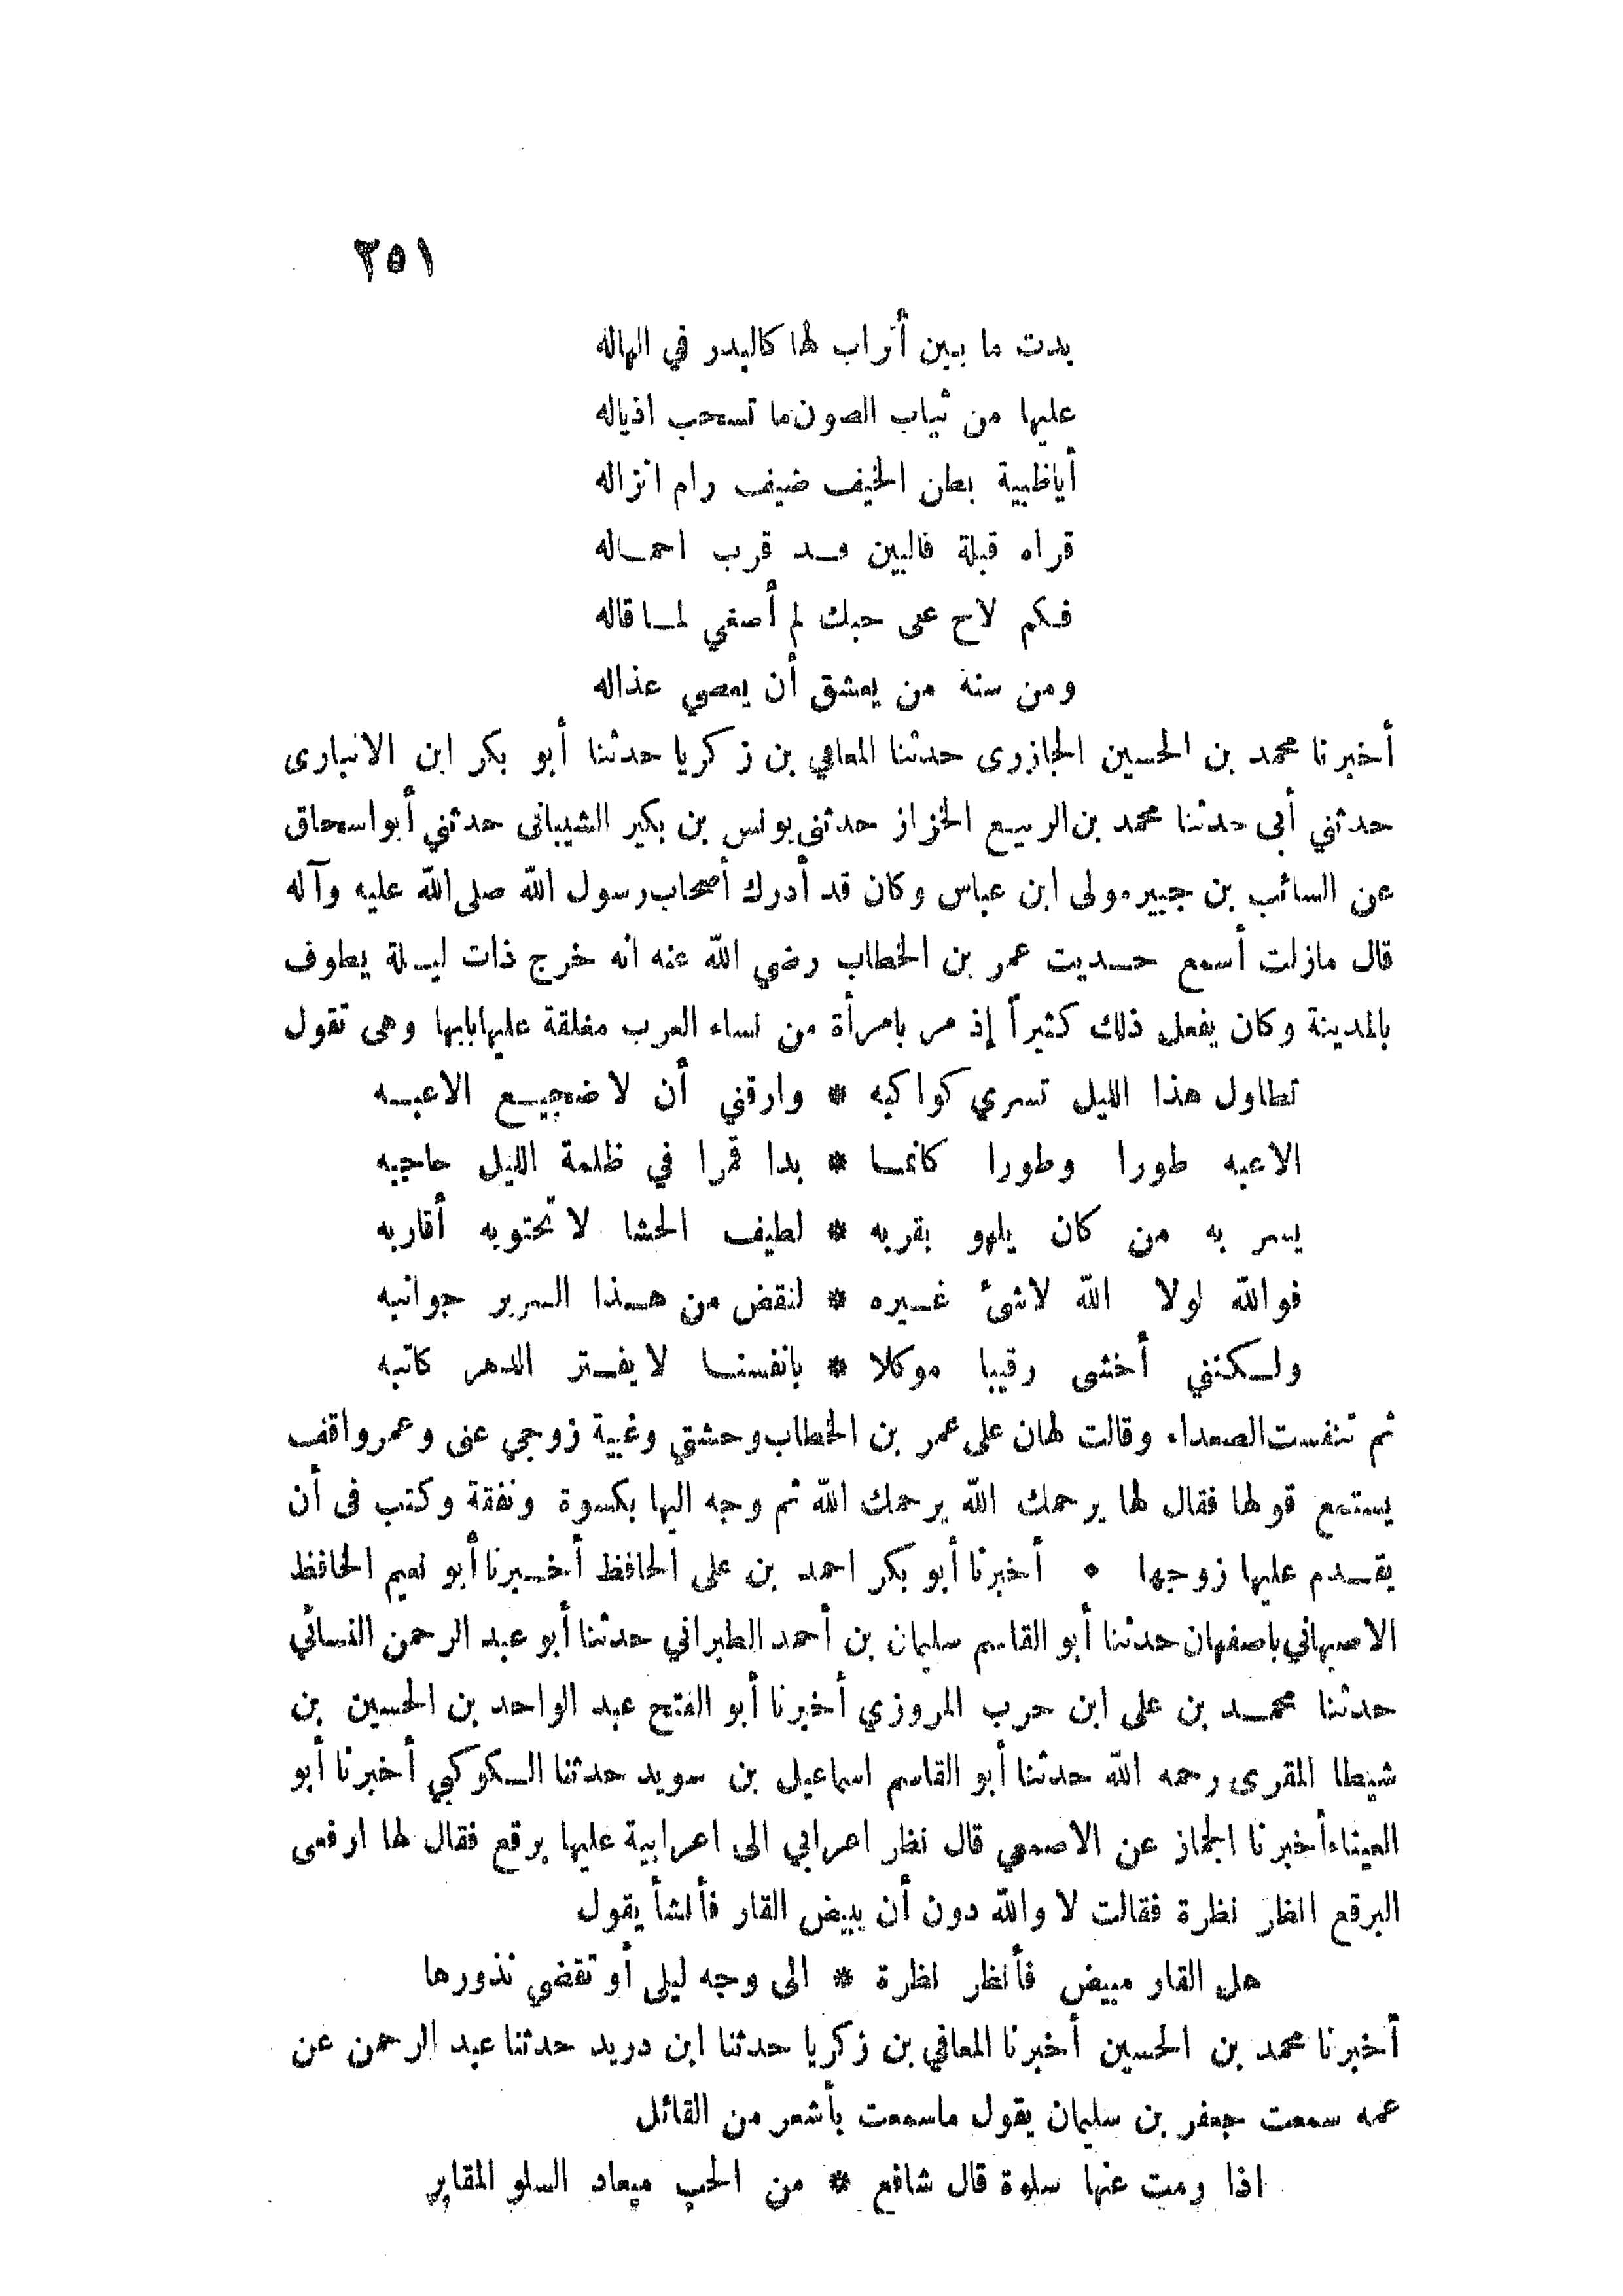 ٢٥١
بدت ما بين أتراب لها كالبدر في الهاله
عليها من ثياب الصون ما تسحب اذياله
أياظبية بطن الخيف ضيف رام انزاله
قراه قبلة فالبين قد قرب احماله
فكم لاح على حبك لم أصغي لما قاله
ومن سنة من يعشق أن يعصي عذاله
أخبرنا محمد بن الحسين الجازرى حدثنا المعافي بن زكريا حدثنا أبو بكر ابن الانبارى
حدثني أبى حدثنا محمد بن الربيع الخزاز حدثني يونس بن بكير الشيبانى حدثني أبواسحاق
عن السائب بن جبير مولى ابن عباس وكان قد أدرك أصحاب رسول الله صلى الله عليه وآله
قال مازلت أسمع حديث عمر بن الخطاب رضي الله عنه انه خرج ذات ليلة يطوف
بالمدينة وكان يفعل ذلك كثيراً إذ مر بامرأة من نساء العرب مغلقة عليها بابها وهى تقول
تطاول هذا الليل تسري كواكبه * وارقني أن لا ضجيع الاعبه
الاعبه طورا وطورا كانما * بدا قمرا في ظلمة الليل حاجبه
يسر به من كان يلهو بقربه * لطيف الحشا لا تحتويه أقاربه
فوالله لولا الله لاشئ غيره * لنقض من هذا السرير جوانبه
ولكنني أخشى رقيبا موكلا * بانفسنا لا يفتر الدهر كاتبه
ثم تنفست الصعداء وقالت لهان على عمر بن الخطاب وحشتي وغيبة زوجي عنى وعمر واقف
يستمع قولها فقال لها يرحمك الله يرحمك الله ثم وجه اليها بكسوة ونفقة وكتب فى أن
يقدم عليها زوجها • أخبرنا أبو بكر احمد بن على الحافظ أخبرنا أبو نعيم الحافظ
الاصبهاني باصفهان حدثنا أبو القاسم سليمان بن أحمد الطبراني حدثنا أبو عبد الرحمن النسائي
حدثنا محمد بن على ابن حرب المروزي أخبرنا أبو الفتح عبد الواحد بن الحسين بن
شيطا المقرى رحمه الله حدثنا أبو القاسم اسماعيل بن سويد حدثنا الكوكبي أخبرنا أبو
العيناء أخبرنا الجماز عن الاصمعي قال نظر اعرابي الى اعرابية عليها برقع فقال لها ارفعى
البرقع انظر نظرة فقالت لا والله دون أن يبيض القار فأنشأ يقول
هل القار مبيض فأنظر نظرة * الى وجه ليلى أو تقضي نذورها
أخبرنا محمد بن الحسين أخبرنا المعافي بن زكريا حدثنا ابن دريد حدثنا عبد الرحمن عن
عمه سمعت جعفر بن سليمان يقول ماسمعت بأشعر من القائل
اذا رمت عنها سلوة قال شافع * من الحب ميعاد السلو المقابر